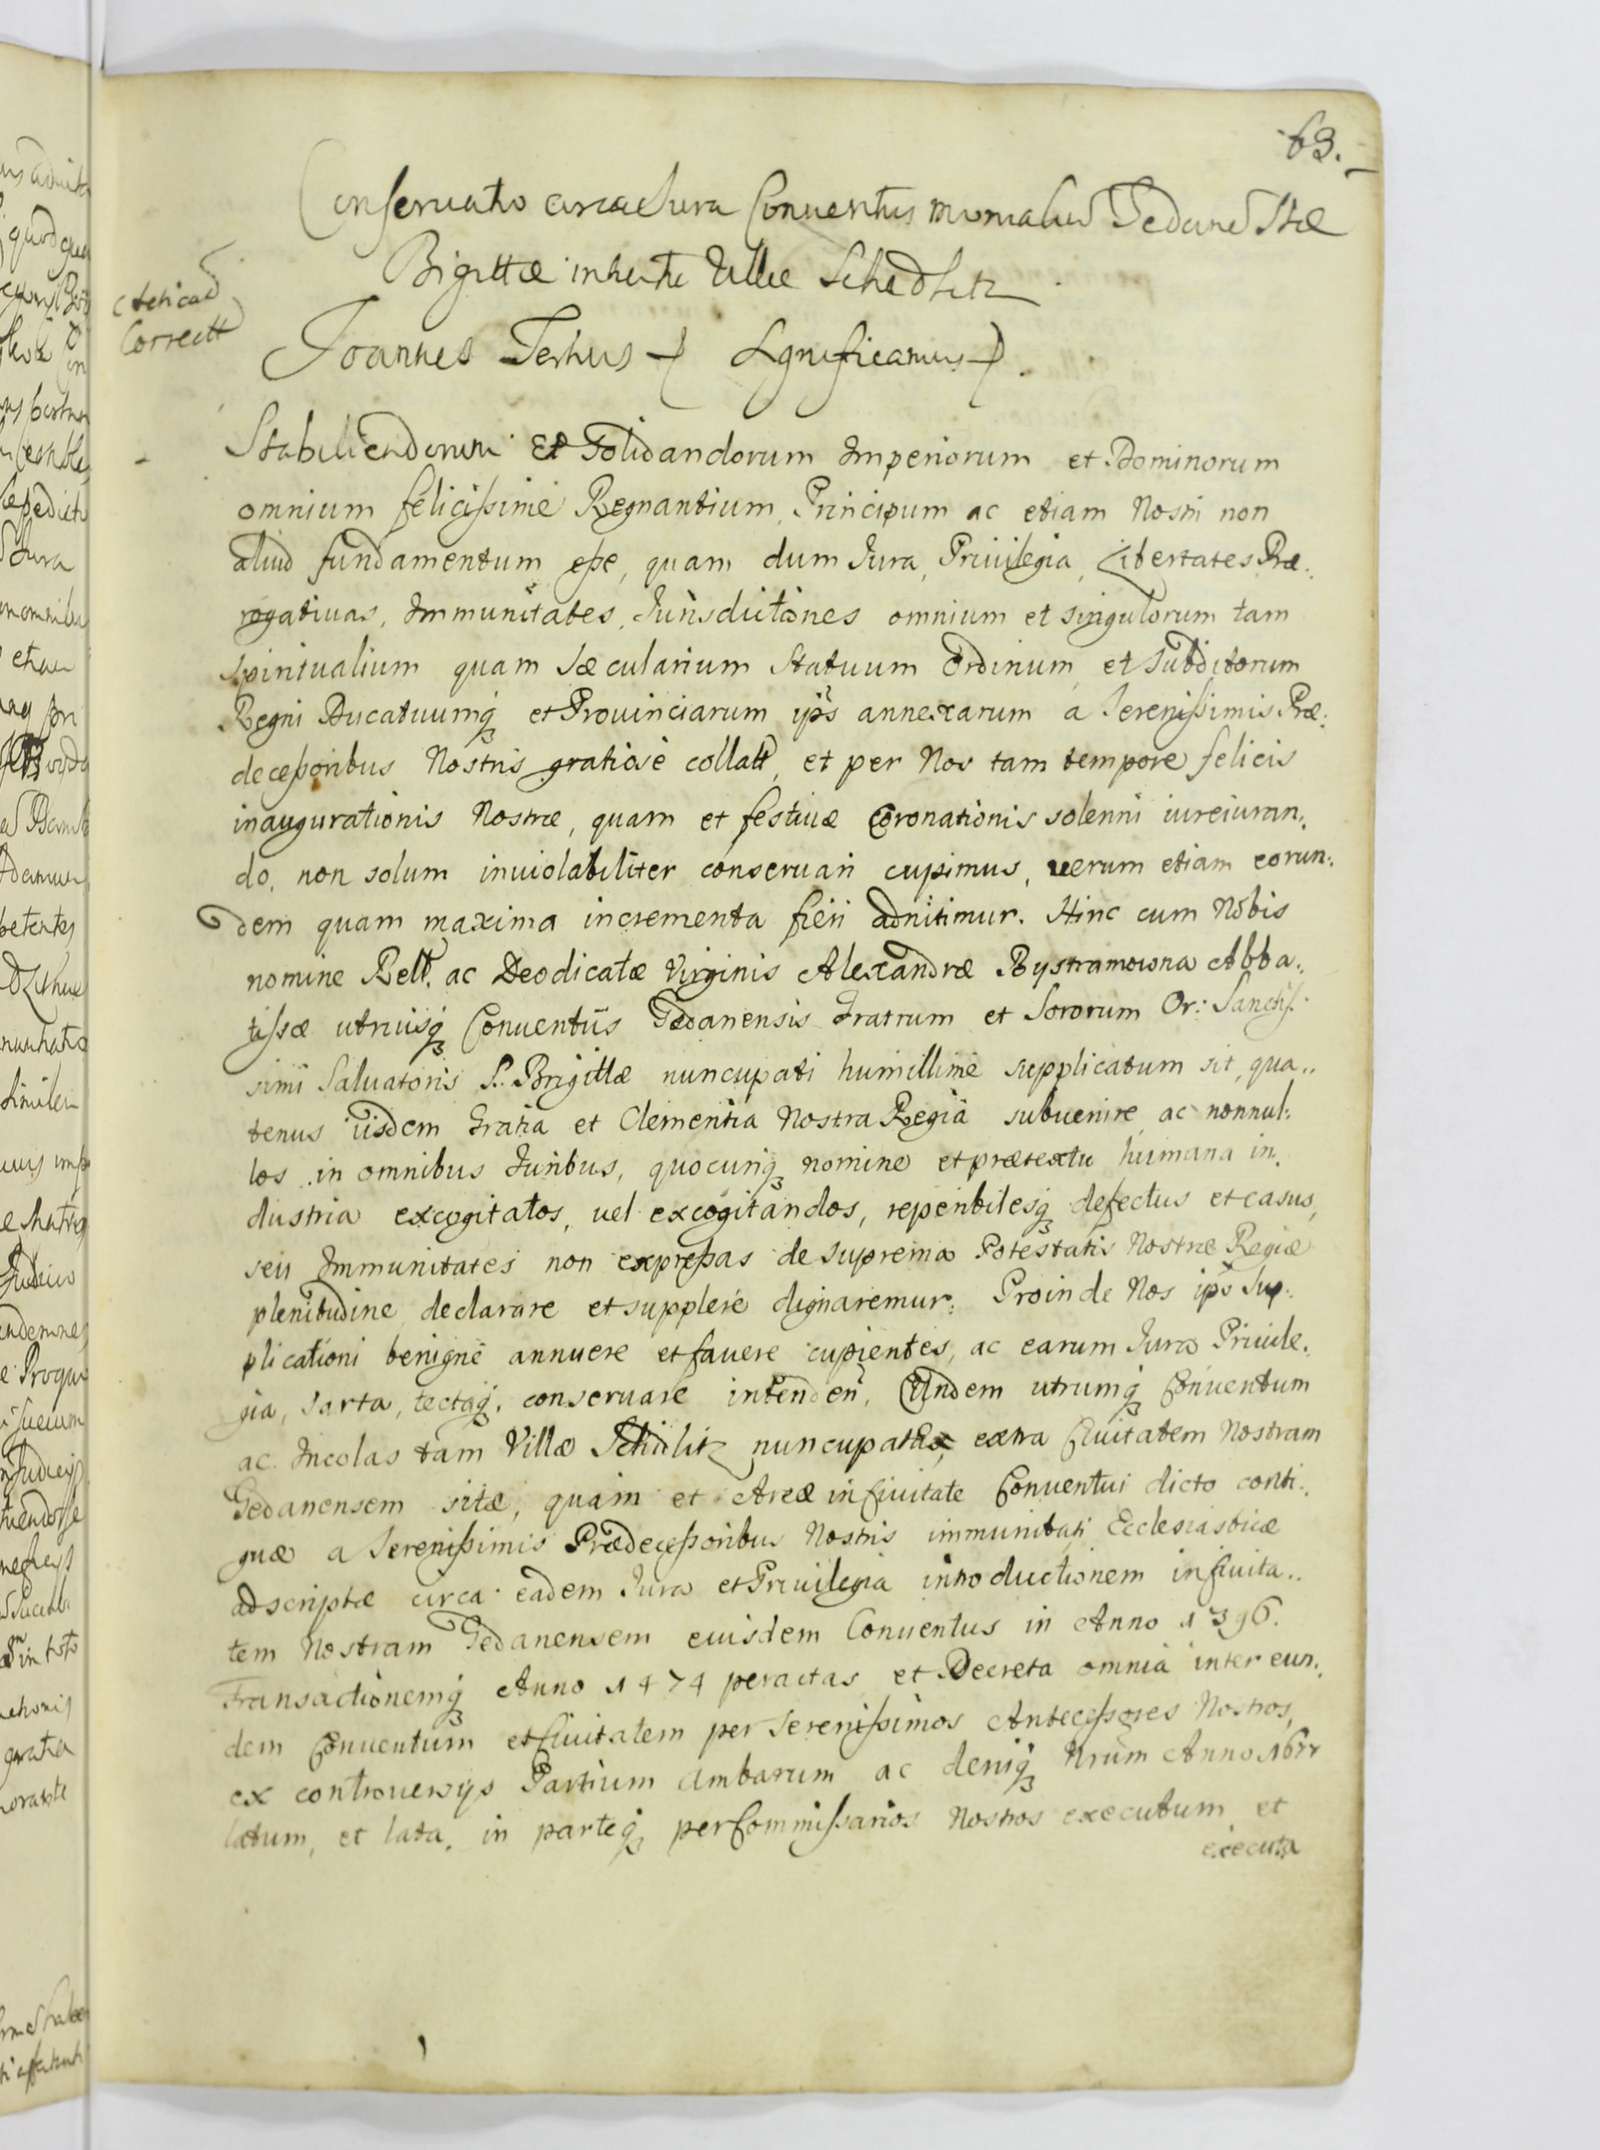 63.
Conseruatio circa Jura Conuentus Monialiu Gedanen Stæ
Brigittæ intuitu Villæ Schedlitz
Correctt
Joannes Tertius Significamus
Stabiliendorum Et Solidandorum Imperiorum et Dominorum
omnium felicißimè Regnantium Principum ac etiam Nostri non
aliud fundamentum eße, quam dum Jura, Priuilegia, Libertates Præ:
rogatiuas, Immunitates, Jurisdictiones omnium et singulorum tam
Spiritualium quam Sæcularium Statuum Ordinum et Subditorum
Regni Ducatuumq3 et Prouinciarum ips annexarum a Serenißimis Præ:
deceßoribus Nostris gratiose collatt, et per Nos tam tempore felicis
inaugurationis Nostræ, quam et festiuæ Coronationis solenni iureiuran:
do, non solum inuiolabiliter conseruari cupimus, verum etiam eorun:
dem quam maxima incrementa fieri adnitimur. Hinc cum Nobis
nomine Rell. ac Deodicatæ Virginis Alexandræ Bystramowna Abba:
tissæ utriusq3 Conuentûs Gedanensis Fratrum et Sororum Or: Sanctis:
simi Saluatoris S. Brigittæ nuncupati humillime supplicatum sit, qua:
tenus iisdem Gratia et Clementia Nostra Regia subuenire ac nonnul:
los in omnibus Juribus, quocunq3 nomine et prætextu humana in:
dustria excogitatos, uel excogitandos, reperibilesq3 defectus et casus,
seu Immunitates non expreßas de suprema Potestatis Nostræ Regiæ
plenitudine declarare et supplere dignaremur: Proinde Nos ips Sup:
plicationi benigne annuere et fauere cupientes, ac earum Jura Priuile:
gia, sarta, tectaq3 conseruare intenden, Eundem utrumq3 Conuentum
ac Incolas tam Villæ Schidlitz nuncupatæ, extra Ciuitatem Nostram
Gedanensem sitæ, quam et Areæ in Ciuitate Conuentui dicto conti:
guæ a Serenißimis Prædeceßoribus Nostris immunitati Ecclesiasticæ
adscriptæ circa eadem Jura et Priuilegia introductionem in Ciuita:
tem Nostram Gedanensem eiusdem Conuentus in Anno 1396.
Transactionemq3 Anno 1474 peractas et Decreta omnia inter eun:
dem Conuentum et Ciuitatem per Serenißimos Anteceßores Nostros,
ex controuersys Partium Ambarum ac deniq3 Nrum Anno 1677
latum, et lata, in parteq3 per Commissarios Nostros executum et
executa